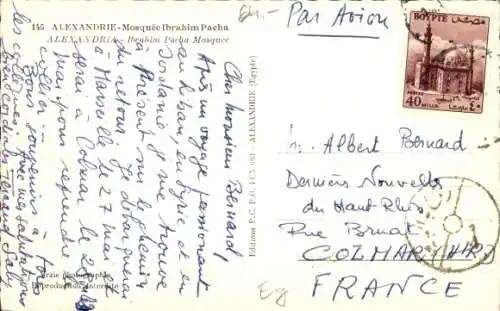 145 ALEXANDRIE - Mosquée Ibrahim Pacha
ALEXANDRIA - Ibrahim Pacha Mosquee
Cher Monsieur Bernard,
Après un voyage passionnant
au Liban, en Syrie et en
Jordanie je me trouve
à présent sur le chemin
du retour. Je débarquerai
à Marseille le 27 mai et
serai à Colmar le 28
mai pour reprendre
collier.
Bons souvenirs à tous
les collègues. Avec mes salutations
bien cordiales
Vraie photographie
Reproduction interdite
ALEXANDRIE (Egypte)
Par Avion
EGYPTE
40 MILLS
٤٠
M. Albert Bernard
Dernières Nouvelles
du Haut Rhin
Rue Bruat
COLMAR (H.R.)
FRANCE
Eg